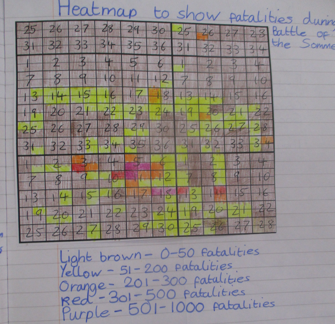 Heatmap to show fatalities durin
Battle of
the Somme
25 26 27 28 29 30 25 26 27 28
31 32 33 34 35 36 31 32 33 34
1 2 3 4 5 6 1 2 3 4
7 8 9 10 11 12 7 8 9 10
13 14 15 16 17 18 13 14 15 16
19 20 21 22 23 24 19 20 21 22
25 26 27 28 29 30 25 26 27 28
31 32 33 34 35 36 31 32 33 34
2 3 4 5 3 4
7 8 9 10
13 14 15 16 17 15 16
19 20 21 22 23 24 19 20 21 22
25 26 27 28 29 30 25 26 27 28
Light brown - 0-50 Fatalities
Yellow - 51-200 Fatalities
Orange - 201-300 Fatalities
Red - 301-500 Fatalities
Purple - 501-1000 Fatalities